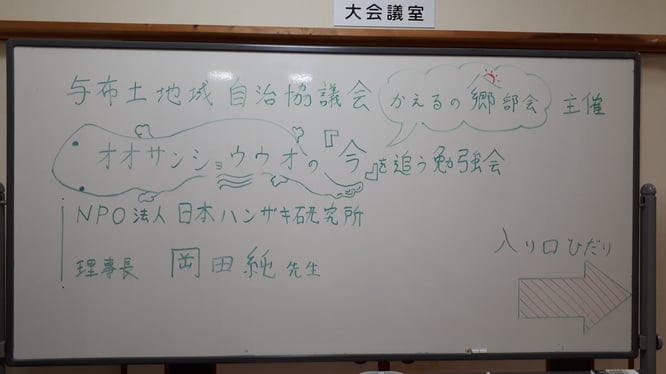 大会議室
与布土地域 自治協議会 かえるの郷部会 主催
オオサンショウウオの『今』を追う勉強会
NPO法人 日本ハンザキ研究所
理事長 岡田純 先生
入り口ひだり